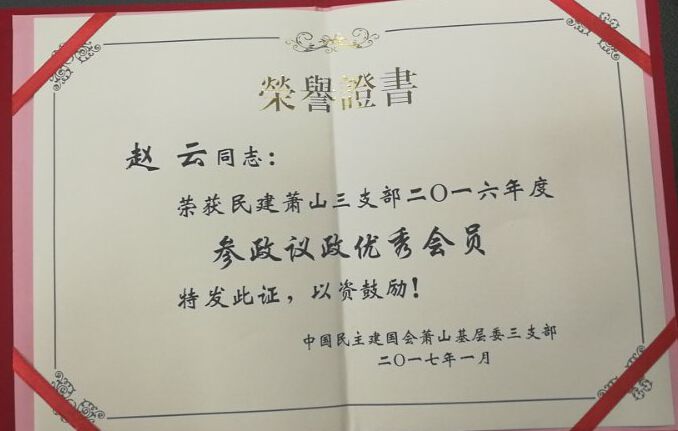 榮譽證書
赵 云同志：
荣获民建萧山三支部二〇一六年度
参政议政优秀会员
特发此证，以资鼓励！
中国民主建国会萧山基层委三支部
二〇一七年一月